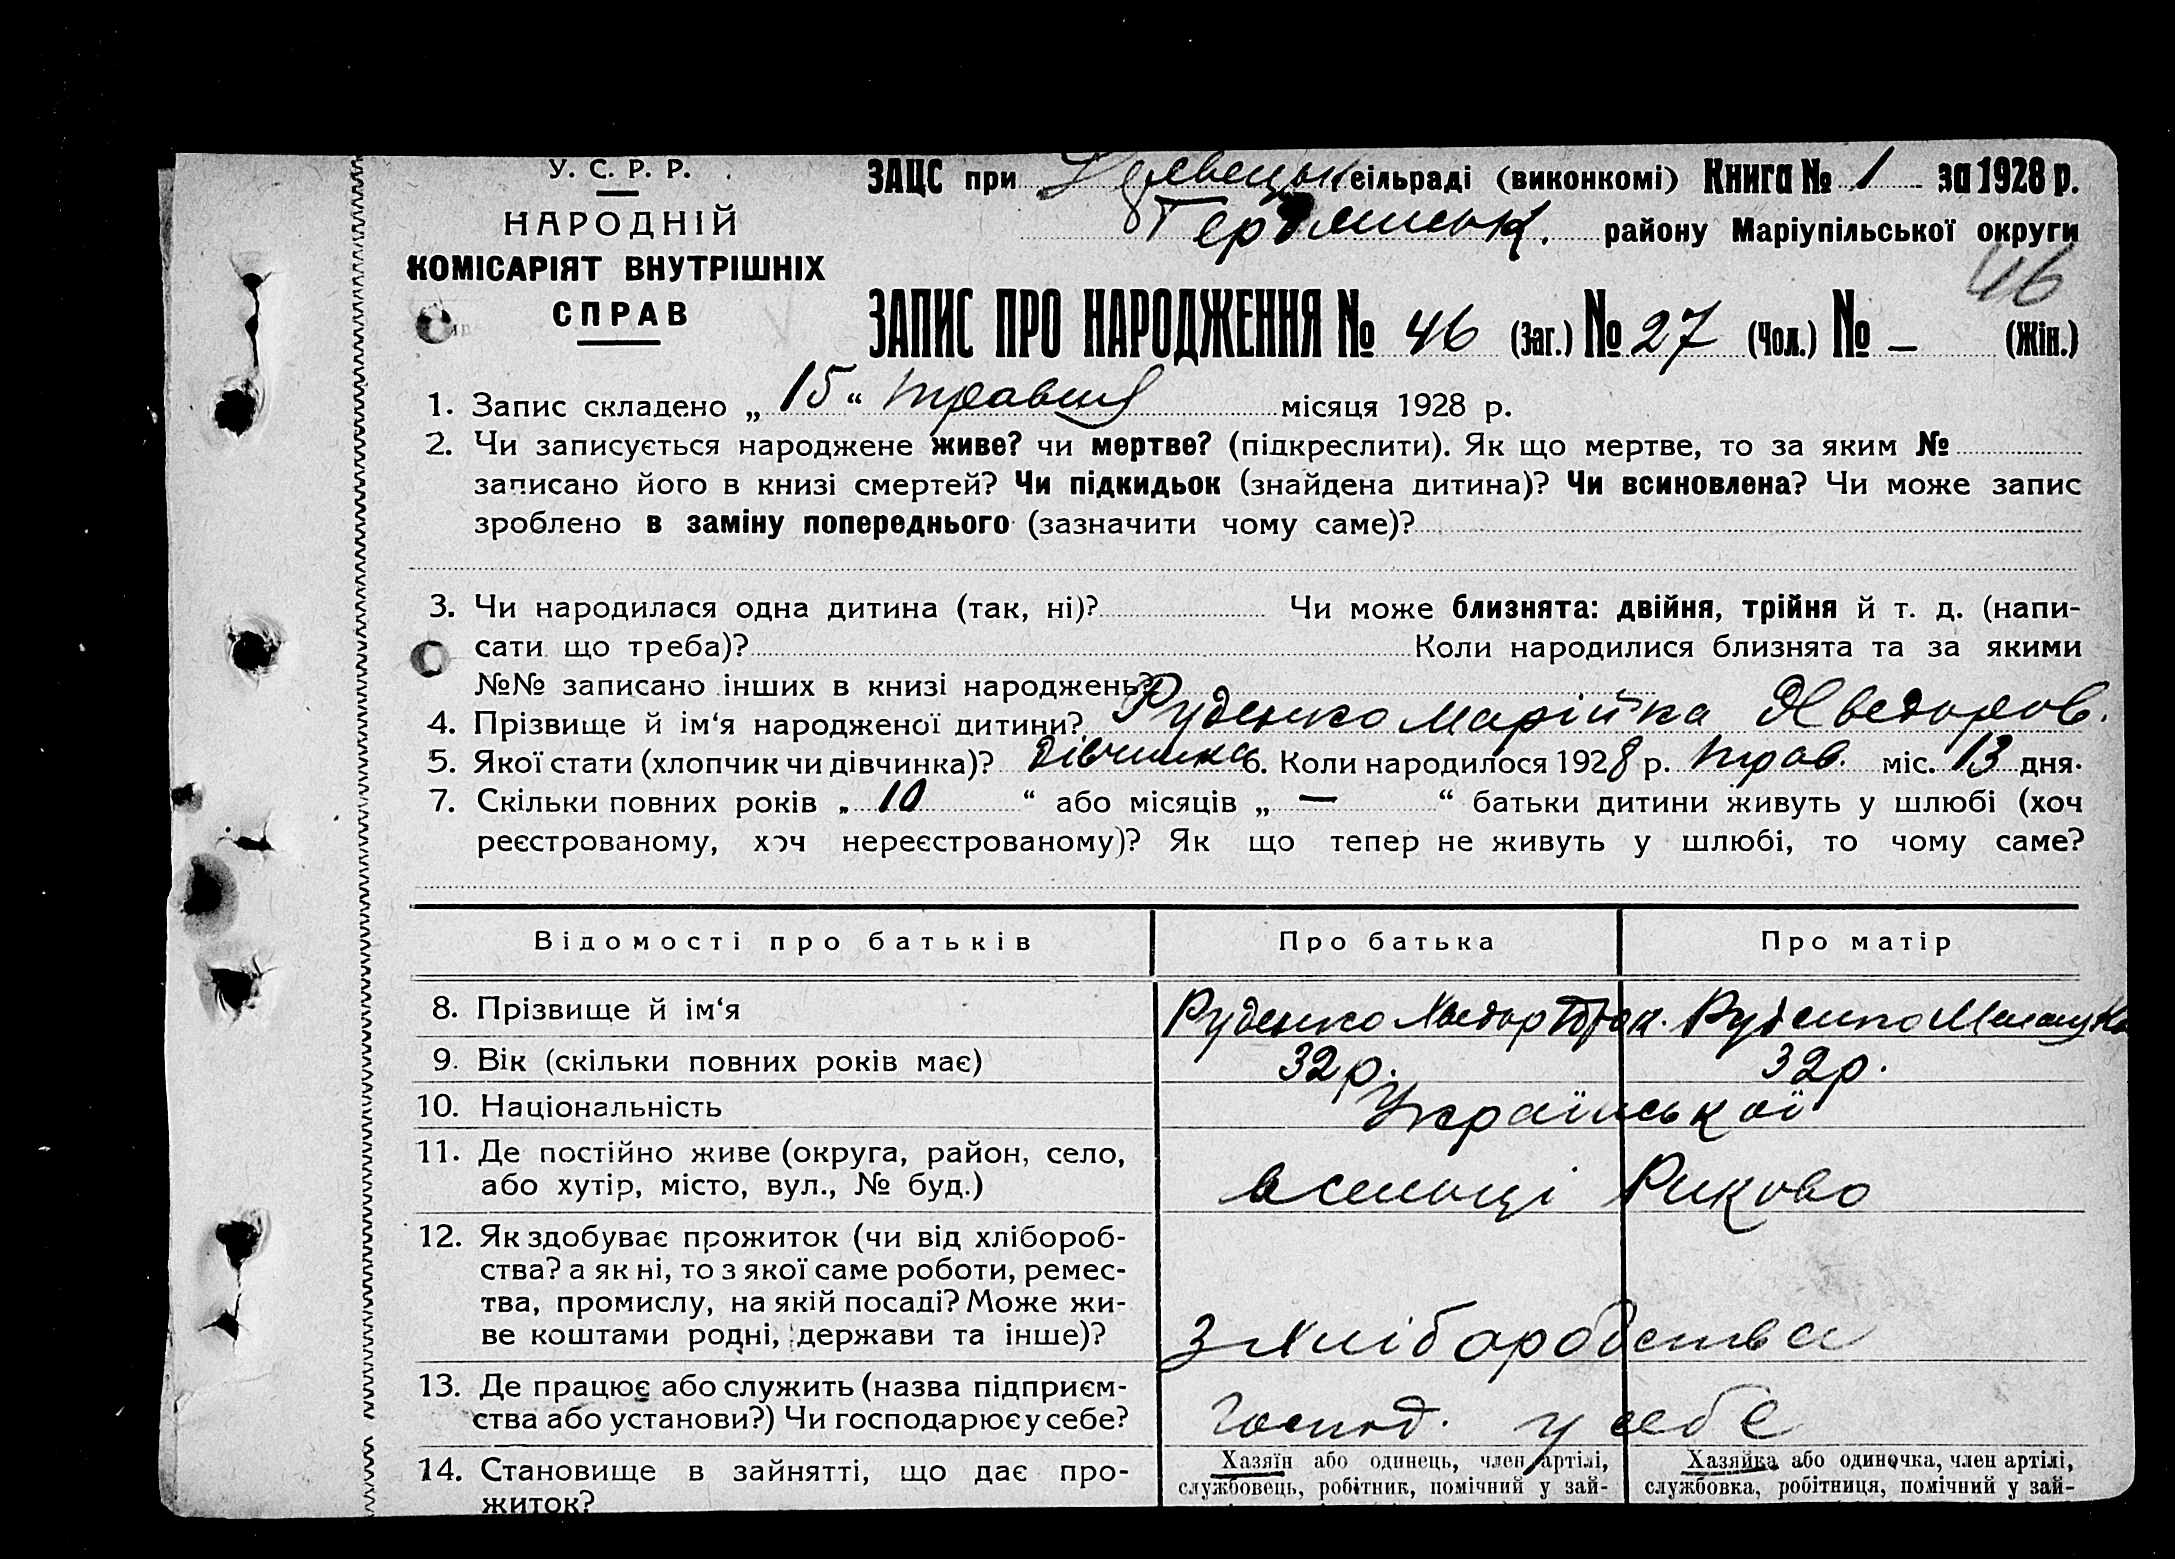 У. С. Р. Р.
НАРОДНІЙ
КОМІСАРІЯТ ВНУТРІШНІХ
СПРАВ
ЗАЦС при сільраді (виконкомі) Книга № 1 за 1928 р.
району Маріупільської округи
46
ЗАПИС ПРО НАРОДЖЕННЯ № 46 (Заг.) № 27 (Чол.) № – (Жін.)
1. Запис складено „ 15 “ травня місяця 1928 р.
2. Чи записується народжене живе? чи мертве? (підкреслити). Як що мертве, то за яким №
записано його в книзі смертей? Чи підкидьок (знайдена дитина)? Чи всиновлена? Чи може запис
зроблено в заміну попереднього (зазначити чому саме)?
3. Чи народилася одна дитина (так, ні)? Чи може близнята: двійня, трійня й т. д. (напи-
сати що треба)? Коли народилися близнята та за якими
№№ записано інших в книзі народжень?
4. Прізвище й ім‘я народженої дитини? Руденко Марійка Хведоров.
5. Якої стати (хлопчик чи дівчинка)? Дівчинка 6. Коли народилося 1928 р. трав. міс. 13 дня.
7. Скільки повних років „ 10 “ або місяців „ — “ батьки дитини живуть у шлюбі (хоч
реєстрованому, хоч нереєстрованому)? Як що тепер не живуть у шлюбі, то чому саме?
Відомості про батьків Про батька Про матір
8. Прізвище й ім‘я Руденко Хведор Руденко
9. Вік (скільки повних років має) 32 р. 32 р.
10. Національність Української
11. Де постійно живе (округа, район, село,
або хутір, місто, вул., № буд.) в селищі Риково
12. Як здобуває прожиток (чи від хлібороб-
ства? а як ні, то з якої саме роботи, ремес-
тва, промислу, на якій посаді? Може жи-
ве коштами родні, держави та інше)? З хліборобства
13. Де працює або служить (назва підприєм-
ства або установи?) Чи господарює у себе? Господ. у себе
14. Становище в зайнятті, що дає про-
житок?
Хазяїн або одинець, член артілі,
службовець, робітник, помічний у зай-
Хазяйка або одиночка, член артілі,
службовка, робітниця, помічний у зай-